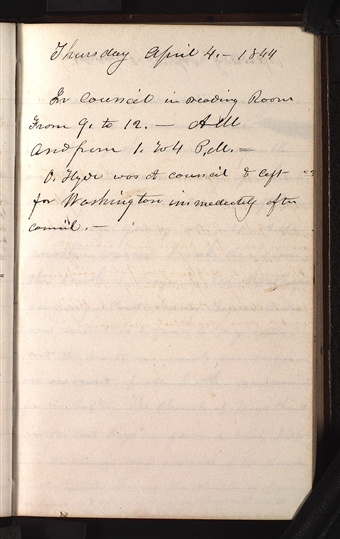 Thursday April 4.- 1844
In Council in reading Room
From 9. to 12. — A M
and from 1. to 4 P.M. —
O. Hyde was at council & left
for Washington immedectily after
council. —